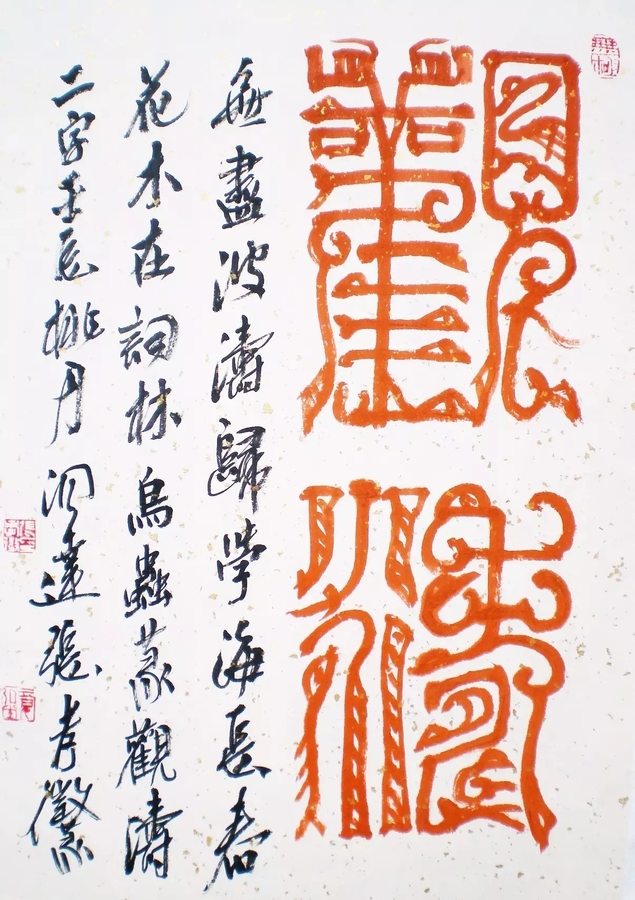 觀濤
無盡波濤歸學海長春
花木在詞林鳥蟲篆觀濤
二字壬辰桃月洞達張孝徽